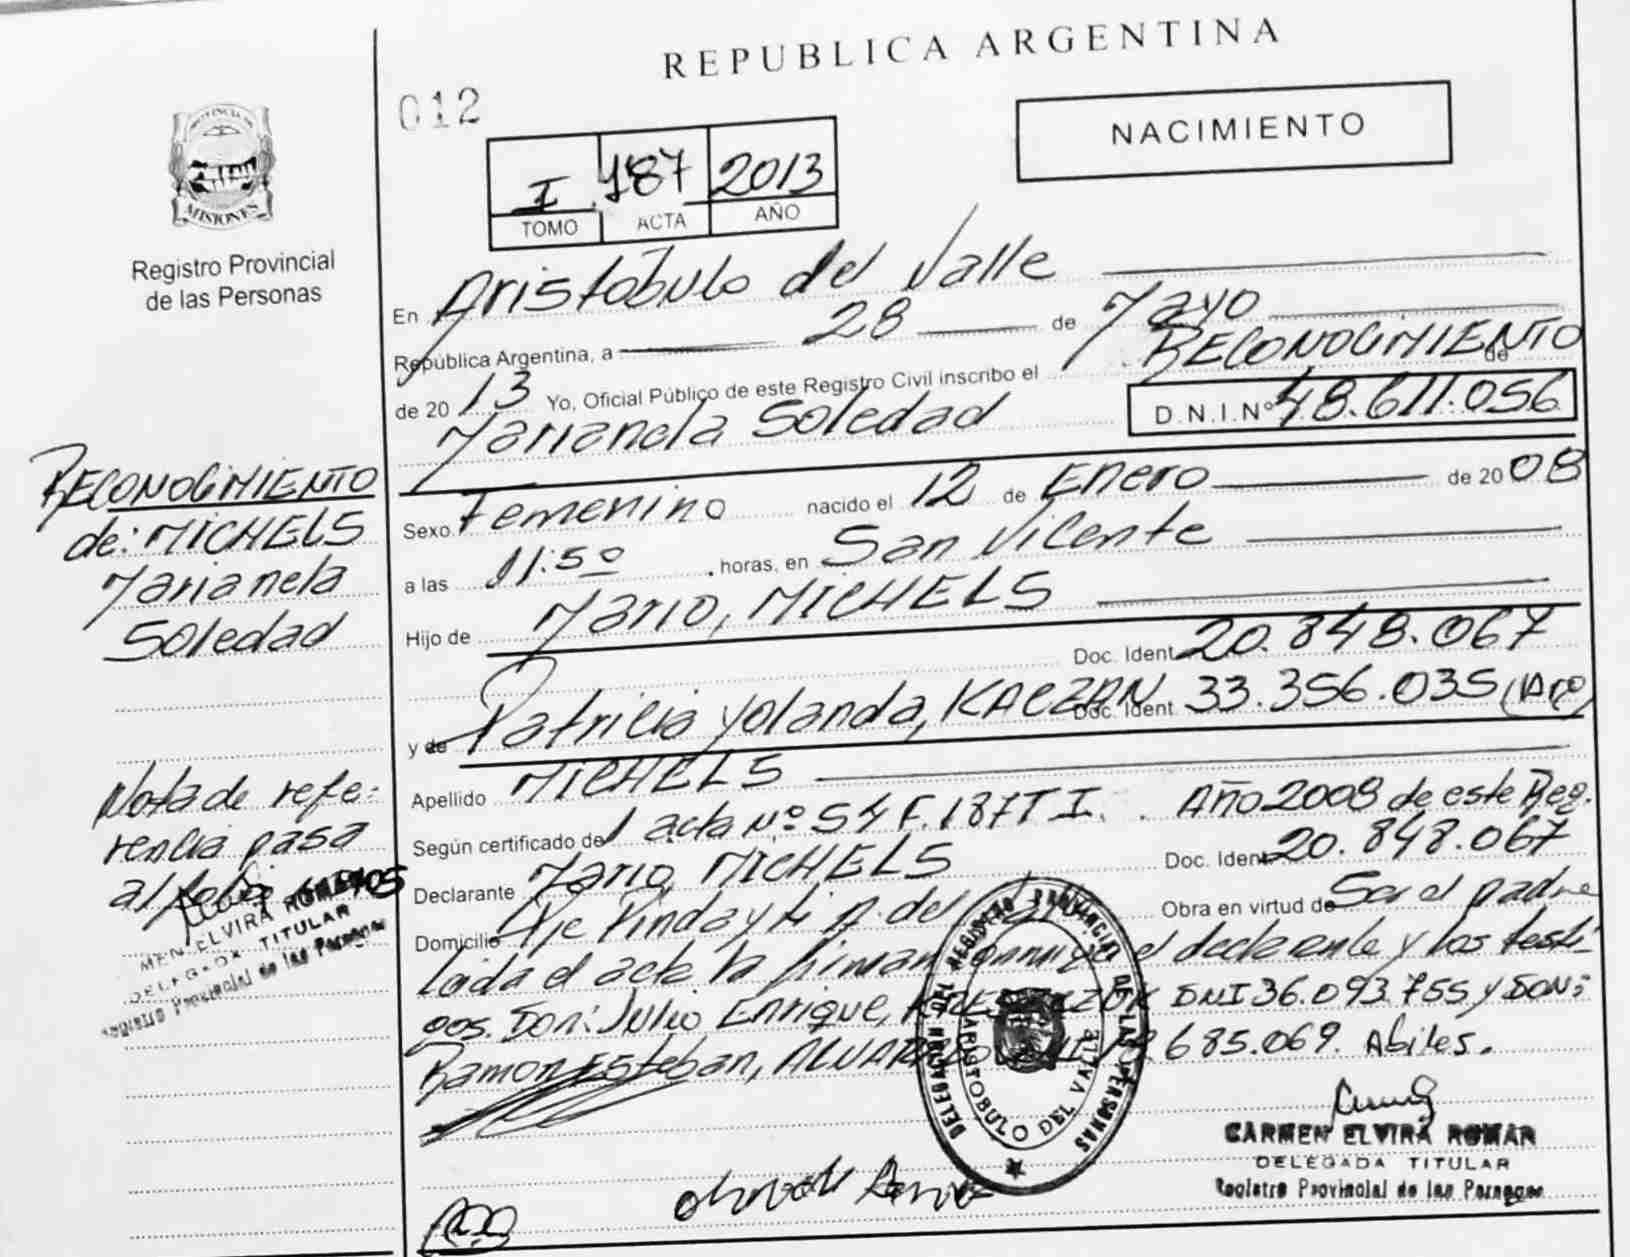 REPUBLICA ARGENTINA
012
NACIMIENTO
I 187 2013
TOMO ACTA AÑO
PROVINCIA DE
MISIONES
Registro Provincial
de las Personas
En Aristobulo del Valle
República Argentina, a 28 de Mayo
de 2013 Yo, Oficial Público de este Registro Civil inscribo el RECONOCIMIENTO de
Marianela Soledad D.N.I.Nº 48.611.056
Sexo Femenino nacido el 12 de Enero de 2008
a las 11:50 horas, en San Vicente
Hijo de Mario, MICHELS
Doc. Ident 20.848.067
y de Patricia Yolanda, KACZAN Doc. Ident 33.356.035
Apellido MICHELS
Según certificado del acta Nº 54 F.187 T I. Año 2008 de este Reg.
Declarante Mario, MICHELS Doc. Ident 20.848.067
Domicilio Pindayti Obra en virtud de Ser el padre
Leida el acta la firman el declarante y los testi
gos. Don: Julio Enrique, DNI 36.093.755 y DON:
Ramon Esteban, 685.069. Abiles.
RECONOCIMIENTO
de: MICHELS
Marianela
Soledad
Nota de refe-
rencia pasa
al folio
MEN ELVIRA ROMAN
DELEGADA TITULAR
Registro Provincial de las Personas
DELEGACION DEL REGISTRO PROVINCIAL DE LAS PERSONAS
ARISTOBULO DEL VALLE
CARMEN ELVIRA ROMAN
DELEGADA TITULAR
Registro Provincial de las Personas